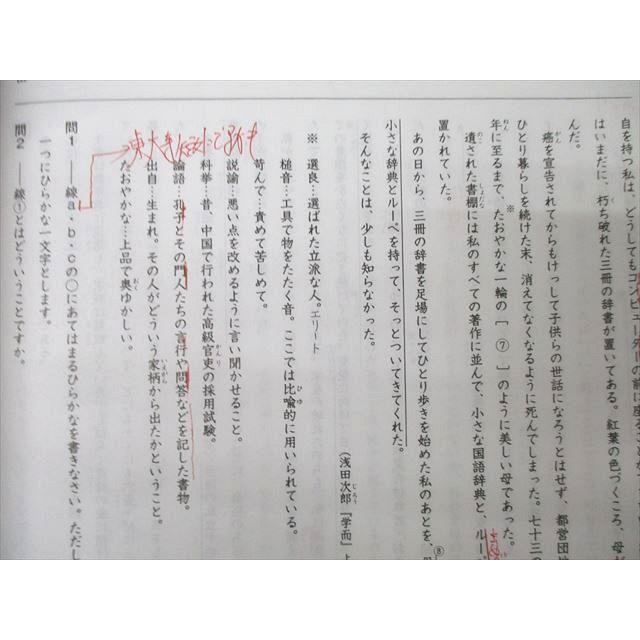 自を持つ私は、どうしてもコンピューターの前に座ること
はいまだに、朽ち破れた三冊の辞書が置いてある。紅葉の色づくころ、母が
んだ。
癌を宣告されてからもけっして子供らの世話になろうとはせず、都営団地
ひとり暮らしを続けた末、消えてなくなるように死んでしまった。七十三の
年に至るまで、たおやかな※一輪の[ ⑦ ]のように美しい母であった。
遺された書棚には私のすべての著作に並んで、小さな国語辞典と、ルー
置かれていた。
あの日から、三冊の辞書を足場にしてひとり歩きを始めた私のあとを、⑧
小さな辞典とルーペを持って、そっとついてきてくれた。
そんなことは、少しも知らなかった。
(浅田次郎『学而』
※ 選良…選ばれた立派な人。エリート
槌音…工具で物をたたく音。ここでは比喩的に用いられている。
苛んで…責めて苦しめて。
説諭…悪い点を改めるように言い聞かせること。
科挙…昔、中国で行われた高級官吏の採用試験。
論語…孔子とその門人たちの言行や問答などを記した書物。
出自…生まれ。その人がどういう家柄から出たかということ。
たおやかな…上品で奥ゆかしい。
問1 ――線a・b・cの〇にあてはまるひらかなを書きなさい。ただし
一つにひらかな一文字とします。
問2 ――線①とはどういうことですか。